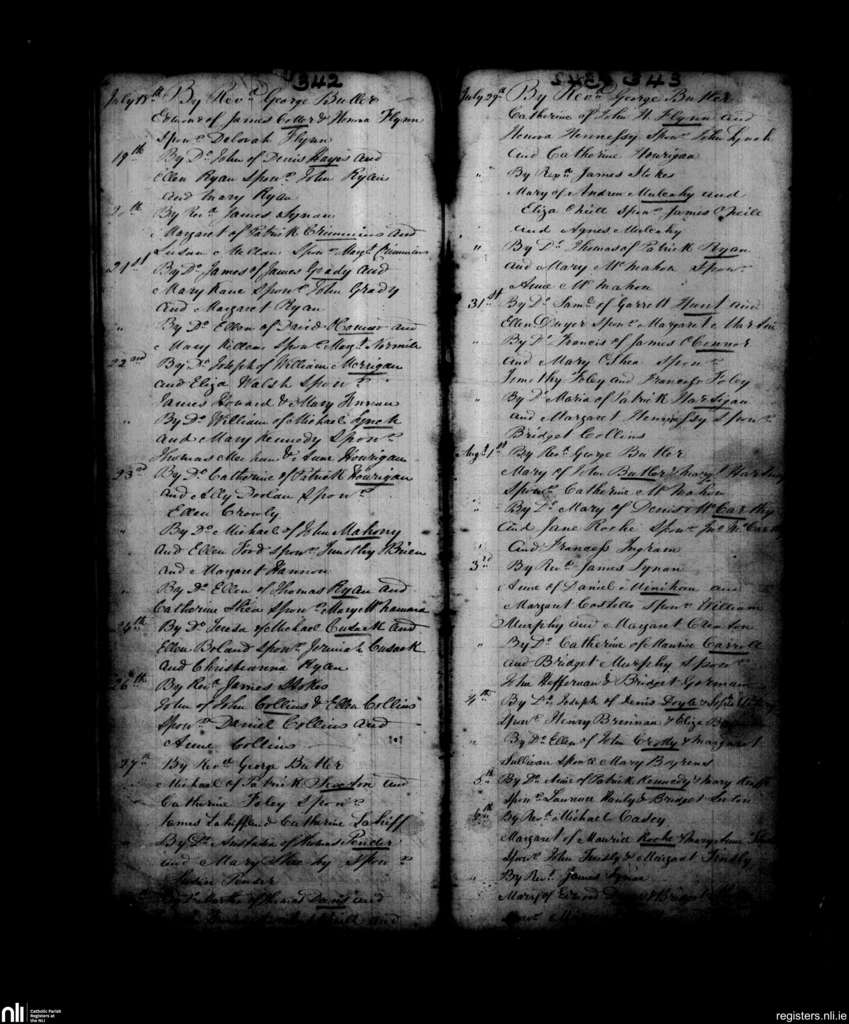 342
July 18th By Revd. George Butler
of James Coller & Honora Flynn
Sponr. Deborah Flynn
19th By Do. John of Denis Hayes and
Ellen Ryan Sponr. John Ryan
and Mary Ryan
20th By Revd. James Synan
Margaret of Patrick Crimmins and
Susan Sponr. Margt. Crimmins
21st By Do. James of James Grady and
Mary Kane Sponr. John Grady
and Margaret Ryan
" By Do. Ellen of David and
Mary Sponr. Margt.
22nd By Do. Joseph of William Merrigan
and Eliza Walsh Sponr.
James Howard & Mary
" By Do. William of Michael Lynch
and Mary Kennedy Sponr.
Thomas Meehan & Anne Hourigan
23rd By Do. Catherine of Patrick Hourigan
and Ally Doolan Sponr.
Ellen Crowly
" By Do. Michael of John Mahony
and Ellen Ford Sponr. Timothy OBrien
and Margaret Hannon
" By Do. Ellen of Thomas Ryan and
Catherine Shea Sponr. Mary McNamara
24th By Do. Teresa of Michael Cusack and
Ellen Boland Sponr. Jeremiah Cusack
and Christianna Ryan
26th By Revd. James Stokes
John of John Collins & Ellen Collins
Sponr. Daniel Collins and
Anne Collins
27th By Revd. George Butler
Michael of Patrick and
Catherine Foley Sponr.
James Lahiff and Catherine Lahiff
" By Do. of Thomas Pender
and Mary Sponr.
Pender
By Do. of Thomas Davis and
and
343
July 29th By Revd. George Butler
Catherine of John H. Flynn and
Honora Hennessy Sponr. John Lynch
and Catherine Hourigan
" By Revd. James Stokes
Mary of Andrew Mulcahy and
Eliza ONeill Sponr. James ONeill
and Agnes Mulcahy
" By Do. Thomas of Patrick Ryan
and Mary McMahon Sponr.
Anne McMahon
31st By Do. Saml. of Garrett Hunt and
Ellen Dwyer Sponr. Margaret Martin
" By Do. Francis of James OConnor
and Mary OShea Sponr.
Timothy Foley and Frances Foley
" By Do. Maria of Patrick Hartigan
and Margaret Hennessy Sponr.
Bridget Collins
Augt. 1st By Revd. George Butler
Mary of John Butler & Margt.
Sponr. Catherine McMahon
" By Do. Mary of Denis McCarthy
and Jane Roche Sponr. Jno. McCarthy
and Frances Ingram
3rd By Revd. James Synan
Anne of Daniel Minihan and
Margaret Costello Sponr. William
Murphy and Margaret
" By Do. Catherine of Maurice Carroll
and Bridget Murphy Sponr.
John Heffernan & Bridget Gorman
4th By Do. Joseph of Denis Doyle &
Sponr. Henry Brennan & Eliza
" By Do. Ellen of John Crotty & Margaret
Sullivan Sponr. Mary
5th By Do. Anne of Patrick Kennedy & Mary
Sponr. Laurence Hanly & Bridget
6th By Revd. Michael Casey
Margaret of Maurice Roche & Mary Anne
Sponr. John & Margaret
" By Revd. James Synan
Mary of Edmond & Bridget
Sponr.
nli
Catholic Parish
Registers at
the NLI
registers.nli.ie